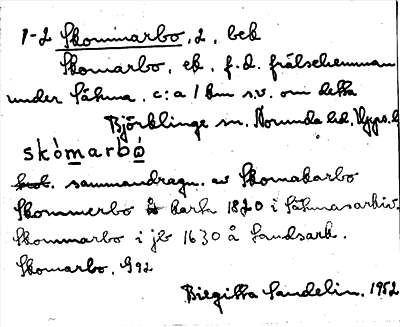 1-2 Skommarbo, 2, bek
Skomarbo, ek, f.d. frälsehemman
under Sähma. c:a 1 km s.v. om detta
Björklinge sn. Norunda hd. Upps. l
skòmarbω
sammandragn. av Skomakarbo
Skommerbo å karta 1820 i Sähmasarkiv.
Skommarbo i jb 1630 å Landsark.
Skomarbo. G 92
Birgitta Sandelin. 1952